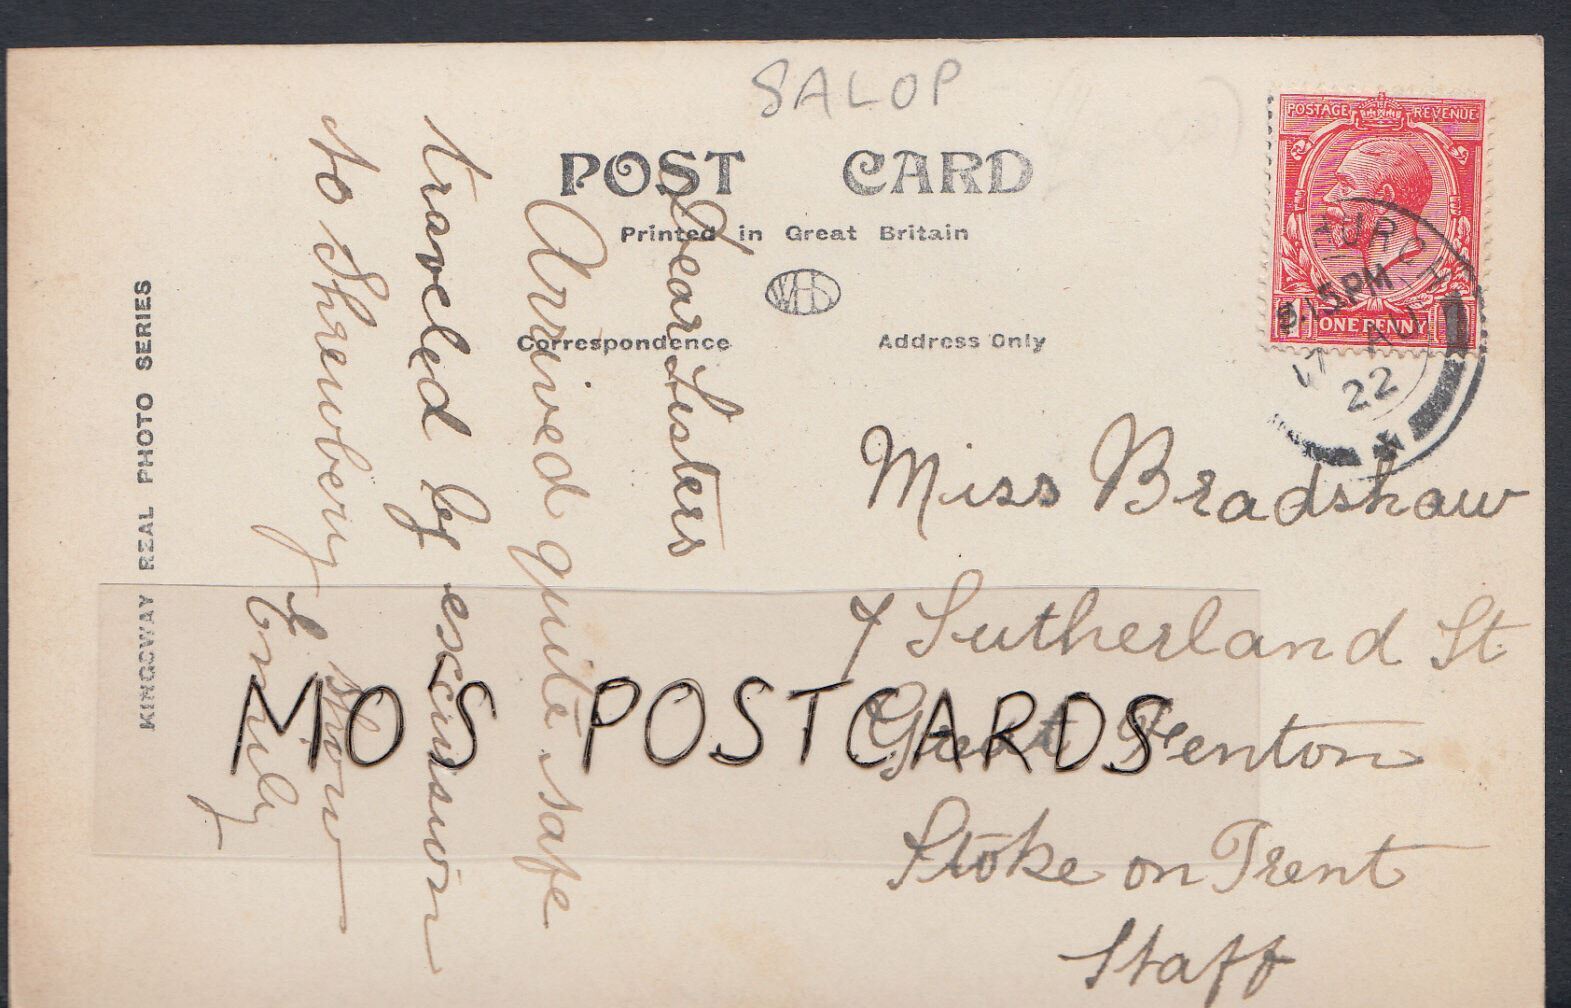 SALOP
POST CARD
Printed in Great Britain
WHS
Correspondence
Address Only
POSTAGE REVENUE
ONE PENNY
.15PM
17 AU
22
Dear Sisters
Arrived quite safe
traveled by excursion
to Shrewbery show
Emily
Miss Bradshaw
7 Sutherland St
Great Fenton
Stoke on Trent
Staff
KINGSWAY REAL PHOTO SERIES
MO'S POSTCARDS